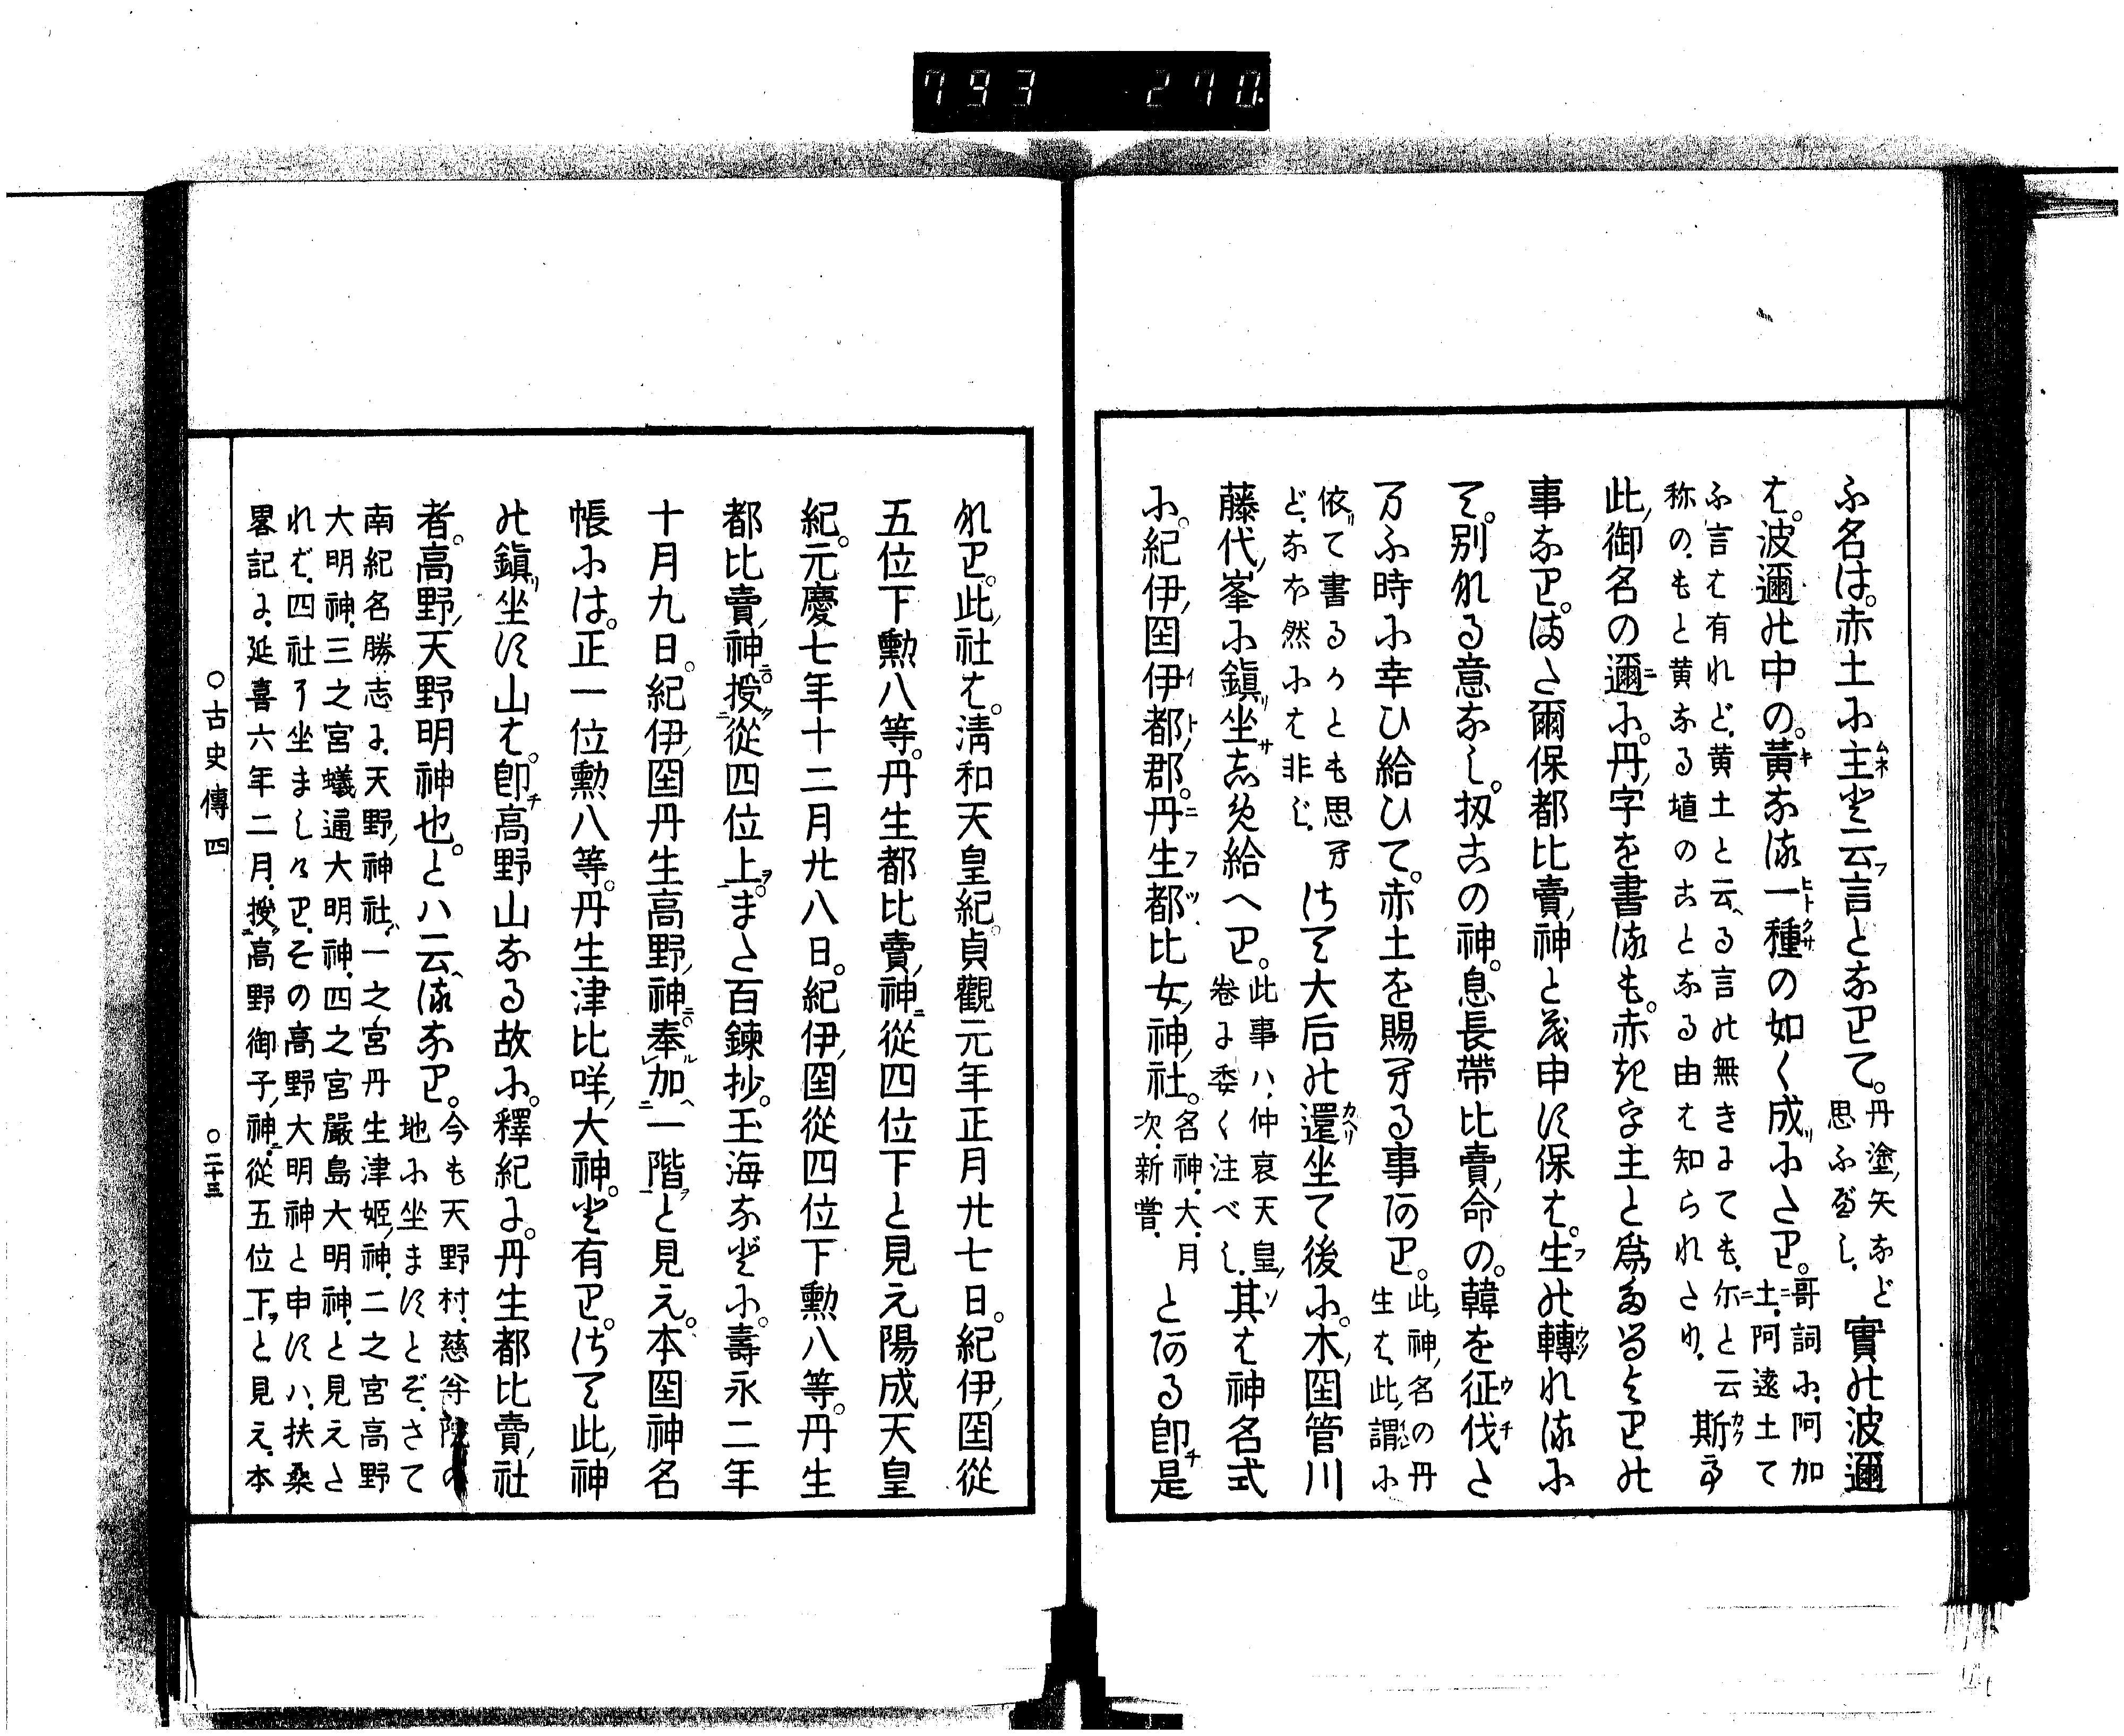 793 270
ふ名は。赤土に主と云言となりて。丹塗矢など思ふべし。實の波邇
は。波邇の中の。黄なる一種の如く成にたり。哥詞に、阿加土、阿遠土て
ふ言は有れど、黄土と云る言の無きにても、尓と云
称の、もと黄なる埴のことなる由は知られたり、斯て
此御名の邇に。丹字を書るも。赤きを主と爲るより の
事なり。また爾保都比賣神とも申す保は。生の轉れるに
て。別れる意なし。扨この神。息長帶比賣命の。韓を征伐た
万ふ時に幸ひ給ひて。赤土を賜へる事あり。此神名の丹生は、此謂に
依て書るかとも思へど、なほ然には非じ、
さて大后の還坐て後に。木國管川
藤代峯に鎭坐さしめ給へり。此事ハ、仲哀天皇、卷に委く注べし、其は神名式
に。紀伊國伊都郡。丹生都比女神社。名神、大、月次、新嘗、とある即是
れり。此社は。淸和天皇紀。貞觀元年正月廿七日。紀伊國從
五位下勳八等。丹生都比賣神從四位下と見え陽成天皇
紀。元慶七年十二月廿八日。紀伊國從四位下勳八等。丹生
都比賣神授從四位上。また百錬抄。玉海などに。壽永二年
十月九日。紀伊國丹生高野神奉加一階と見え。本國神名
帳には。正一位勳八等。丹生津比咩大神。と有り。さて此神
の鎭坐す山は。即高野山なる故に。釋紀に。丹生都比賣社
者。高野天野明神也。とハ云るなり。今も天野村、慈尊院の地に坐ますとぞ、さて
南紀名勝志に、天野神社、一之宮丹生津姫神、二之宮高野
大明神、三之宮蟻通大明神、四之宮嚴島大明神、と見えた
れば、四社に坐ましけり、その高野大明神と申すハ、扶桑
畧記に、延喜六年二月、授高野御子神、從五位下、と見え、本
○古史傳四 ○二十三